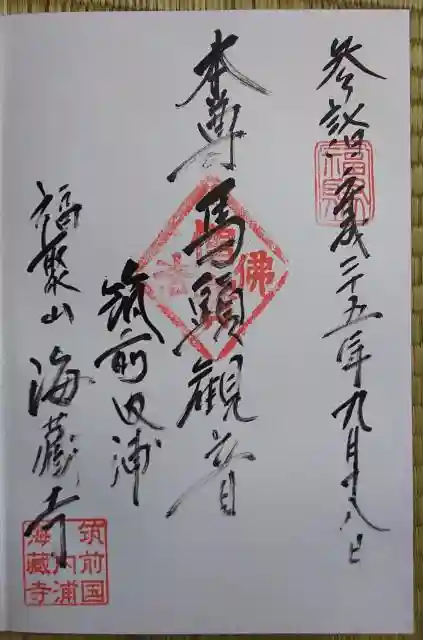 参詣 平成二十五年九月十八日
福聚
本尊 馬頭觀音
佛法僧
筑前内浦
福聚山 海蔵寺
筑前国
内浦
海藏寺